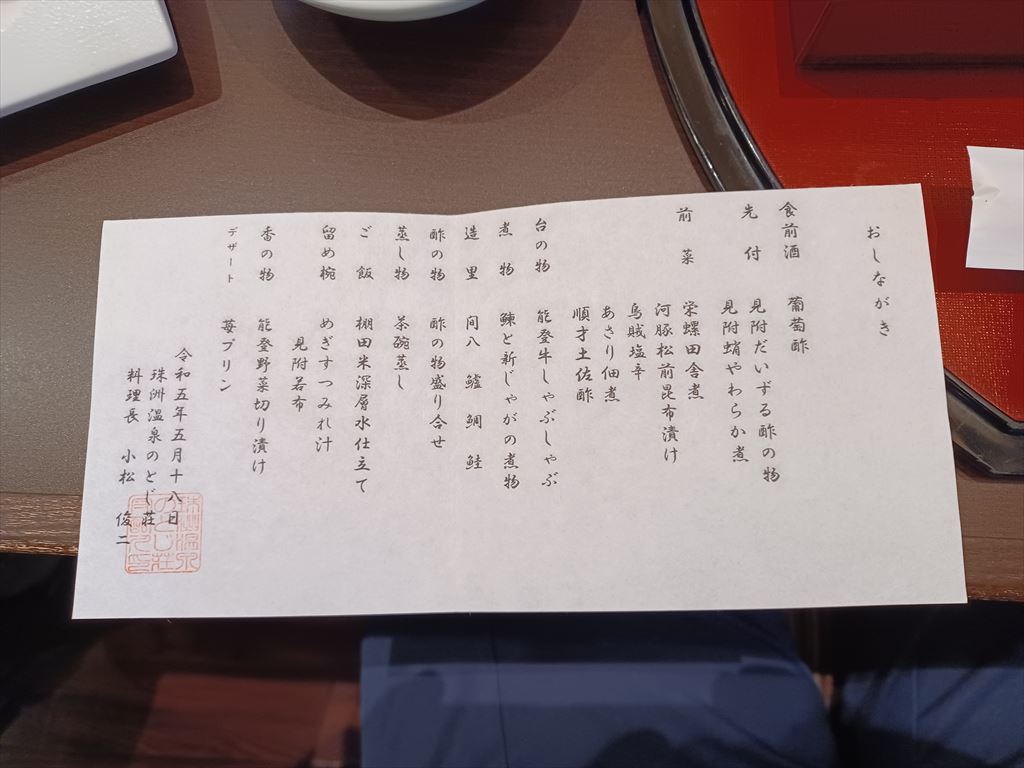 おしながき
食前酒 葡萄酢
先付 見附だいずる酢の物
見附蛸やわらか煮
前菜 栄螺田舎煮
河豚松前昆布漬け
烏賊塩辛
あさり佃煮
順才土佐酢
台の物 能登牛しゃぶしゃぶ
煮物 鰊と新じゃがの煮物
造里 間八 鱸 鯛 鮭
酢の物 酢の物盛り合せ
蒸し物 茶碗蒸し
ご飯 棚田米深層水仕立て
留め椀 めぎすつみれ汁
見附若布
香の物 能登野菜切り漬け
デザート 苺プリン
令和五年五月十八日
珠洲温泉のとじ荘
料理長 小松 俊二